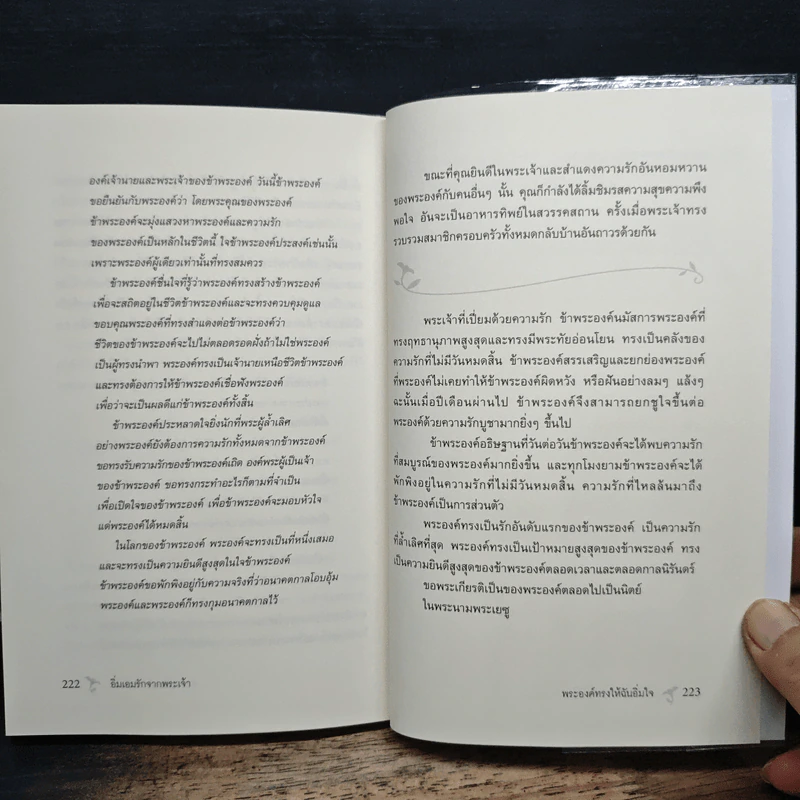 องค์เจ้านายและพระเจ้าของข้าพระองค์ วันนี้ข้าพระองค์
ขอยืนยันกับพระองค์ว่า โดยพระคุณของพระองค์
ข้าพระองค์จะมุ่งแสวงหาพระองค์และความรัก
ของพระองค์เป็นหลักในชีวิตนี้ ใจข้าพระองค์ประสงค์เช่นนั้น
เพราะพระองค์ผู้เดียวเท่านั้นที่ทรงสมควร
ข้าพระองค์ชื่นใจที่รู้ว่าพระองค์ทรงสร้างข้าพระองค์
เพื่อจะสถิตอยู่ในชีวิตข้าพระองค์และจะทรงควบคุมดูแล
ขอบคุณพระองค์ที่ทรงสำแดงต่อข้าพระองค์ว่า
ชีวิตของข้าพระองค์จะไปไม่ตลอดรอดฝั่งถ้าไม่ใช่พระองค์
เป็นผู้ทรงนำพา พระองค์ทรงเป็นเจ้านายเหนือชีวิตข้าพระองค์
และทรงต้องการให้ข้าพระองค์เชื่อฟังพระองค์
เพื่อว่าจะเป็นผลดีแก่ข้าพระองค์ทั้งสิ้น
ข้าพระองค์ประหลาดใจยิ่งนักที่พระผู้ล้ำเลิศ
อย่างพระองค์ยังต้องการความรักทั้งหมดจากข้าพระองค์
ขอทรงรับความรักของข้าพระองค์เถิด องค์พระผู้เป็นเจ้า
ของข้าพระองค์ ขอทรงกระทำอะไรก็ตามที่จำเป็น
เพื่อเปิดใจของข้าพระองค์ เพื่อข้าพระองค์จะมอบหัวใจ
แด่พระองค์ได้หมดสิ้น
ในโลกของข้าพระองค์ พระองค์จะทรงเป็นที่หนึ่งเสมอ
และจะทรงเป็นความยินดีสูงสุดในใจข้าพระองค์
ข้าพระองค์ขอพักพิงอยู่กับความจริงที่ว่าอนาคตกาลโอบอุ้ม
พระองค์และพระองค์ก็ทรงกุมอนาคตกาลไว้
222 อิ่มเอมรักจากพระเจ้า
ขณะที่คุณยินดีในพระเจ้าและสำแดงความรักอันหอมหวาน
ของพระองค์กับคนอื่นๆ นั้น คุณก็กำลังได้ลิ้มชิมรสความสุขความพึง
พอใจ อันจะเป็นอาหารทิพย์ในสวรรคสถาน ครั้งเมื่อพระเจ้าทรง
รวบรวมสมาชิกครอบครัวทั้งหมดกลับบ้านอันถาวรด้วยกัน
พระเจ้าที่เปี่ยมด้วยความรัก ข้าพระองค์นมัสการพระองค์ที่
ทรงฤทธานุภาพสูงสุดและทรงมีพระทัยอ่อนโยน ทรงเป็นคลังของ
ความรักที่ไม่มีวันหมดสิ้น ข้าพระองค์สรรเสริญและยกย่องพระองค์
ที่พระองค์ไม่เคยทำให้ข้าพระองค์ผิดหวัง หรือฝันอย่างลมๆ แล้งๆ
ฉะนั้นเมื่อปีเดือนผ่านไป ข้าพระองค์จึงสามารถยกชูใจขึ้นต่อ
พระองค์ด้วยความรักบูชามากยิ่งๆ ขึ้นไป
ข้าพระองค์อธิษฐานที่วันต่อวันข้าพระองค์จะได้พบความรัก
ที่สมบูรณ์ของพระองค์มากยิ่งขึ้น และทุกโมงยามข้าพระองค์จะได้
พักพิงอยู่ในความรักที่ไม่มีวันหมดสิ้น ความรักที่ไหลล้นมาถึง
ข้าพระองค์เป็นการส่วนตัว
พระองค์ทรงเป็นรักอันดับแรกของข้าพระองค์ เป็นความรัก
ที่ล้ำเลิศที่สุด พระองค์ทรงเป็นเป้าหมายสูงสุดของข้าพระองค์ ทรง
เป็นความยินดีสูงสุดของข้าพระองค์ตลอดเวลาและตลอดกาลนิรันดร์
ขอพระเกียรติเป็นของพระองค์ตลอดไปเป็นนิตย์
ในพระนามพระเยซู
พระองค์ทรงให้ฉันอิ่มใจ 223